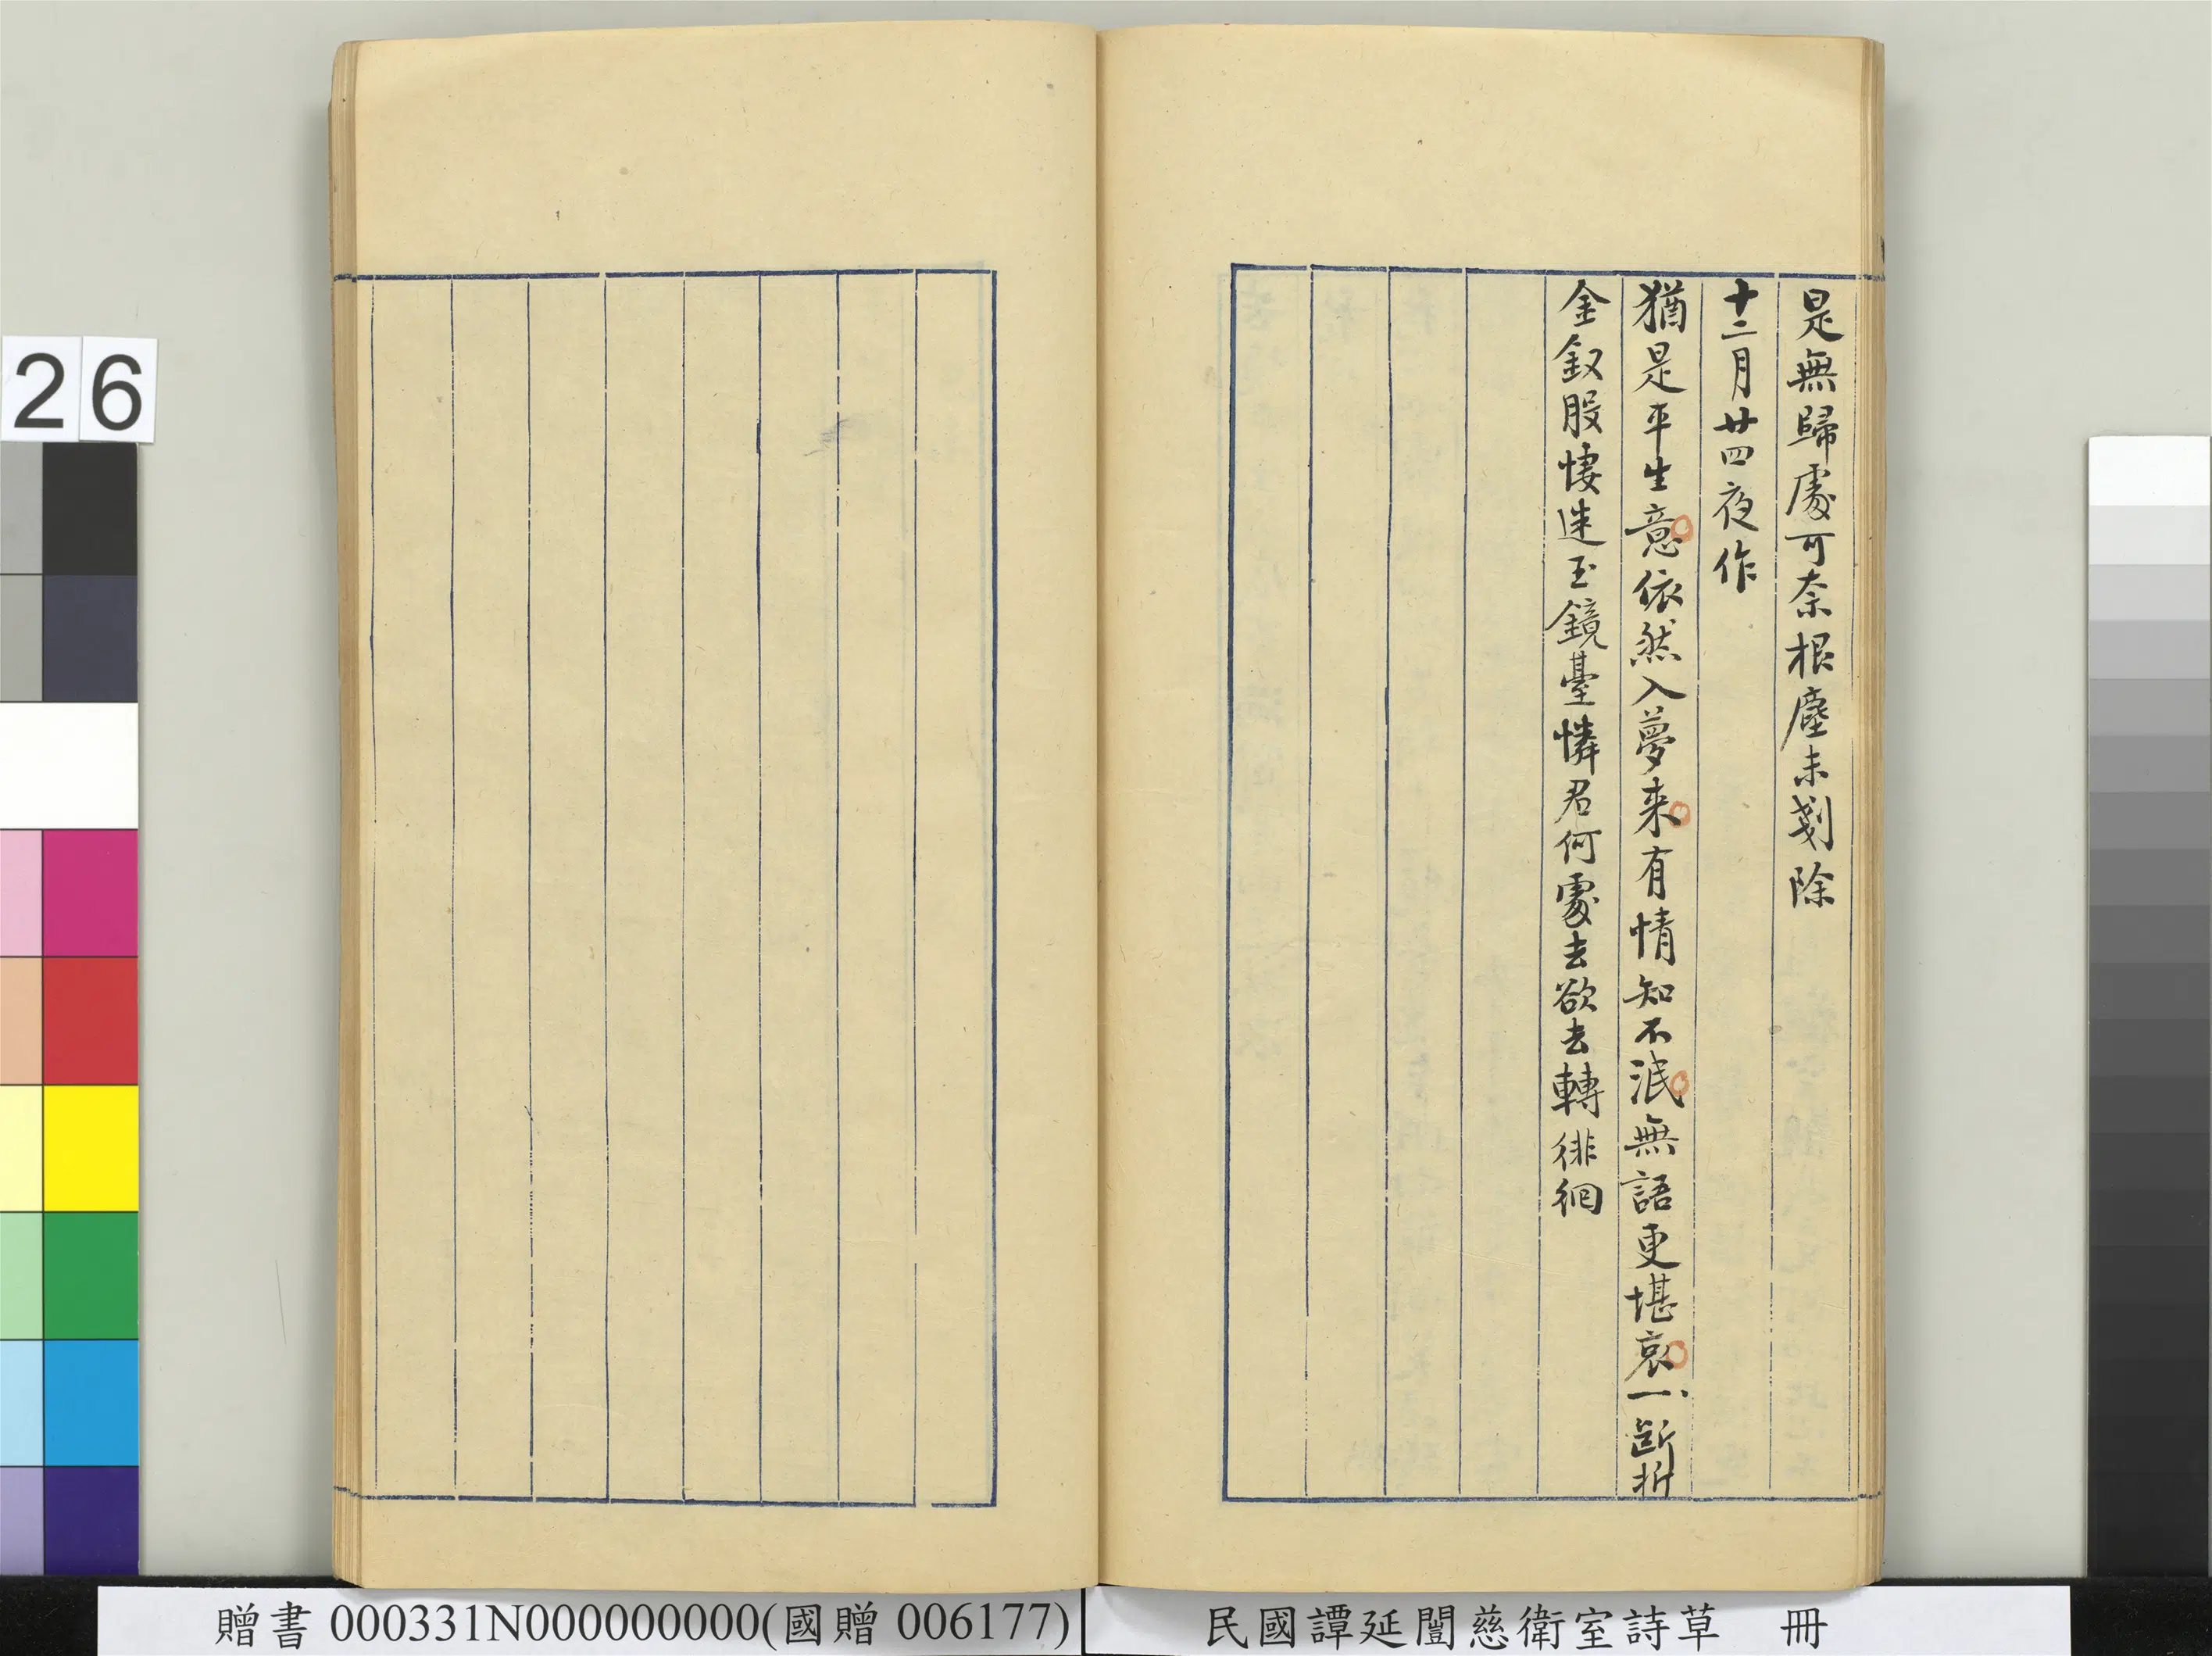 是無歸處可奈根塵未剗除
十二月廿四夜作
猶是平生意依然入夢来有情知不泯無語更堪哀一斷折
金釵股悽迷玉鏡臺憐君何處去欲去轉徘徊
26
贈書 000331N000000000(國贈 006177)
民國譚延闓慈衛室詩草 冊